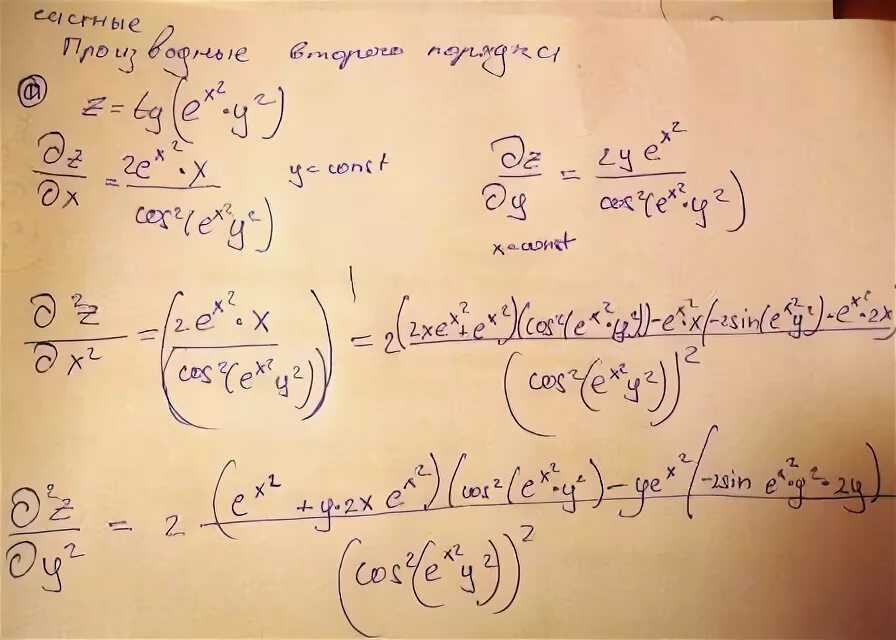 частные
Производные второго порядка
а) z = tg(e^{x^2}·y^2)
∂z/∂x = 2e^{x^2}·x / cos^2(e^{x^2}y^2) y=const ∂z/∂y = 2y e^{x^2} / cos^2(e^{x^2}·y^2)
x=const
∂^2z/∂x^2 = (2e^{x^2}·x / (cos^2(e^{x^2}y^2)))' = 2(2xe^{x^2}+e^{x^2})(cos^2(e^{x^2}·y^2))-e^{x^2}·x(-2sin(e^{x^2}y^2)·e^{x^2}·2x / (cos^2(e^{x^2}y^2))^2
∂^2z/∂y^2 = 2 (e^{x^2}+y·2x e^{x^2})(cos^2(e^{x^2}·y^2)-ye^{x^2}(-2sin e^{x^2}·y^2·2y) / (cos^2(e^{x^2}y^2))^2